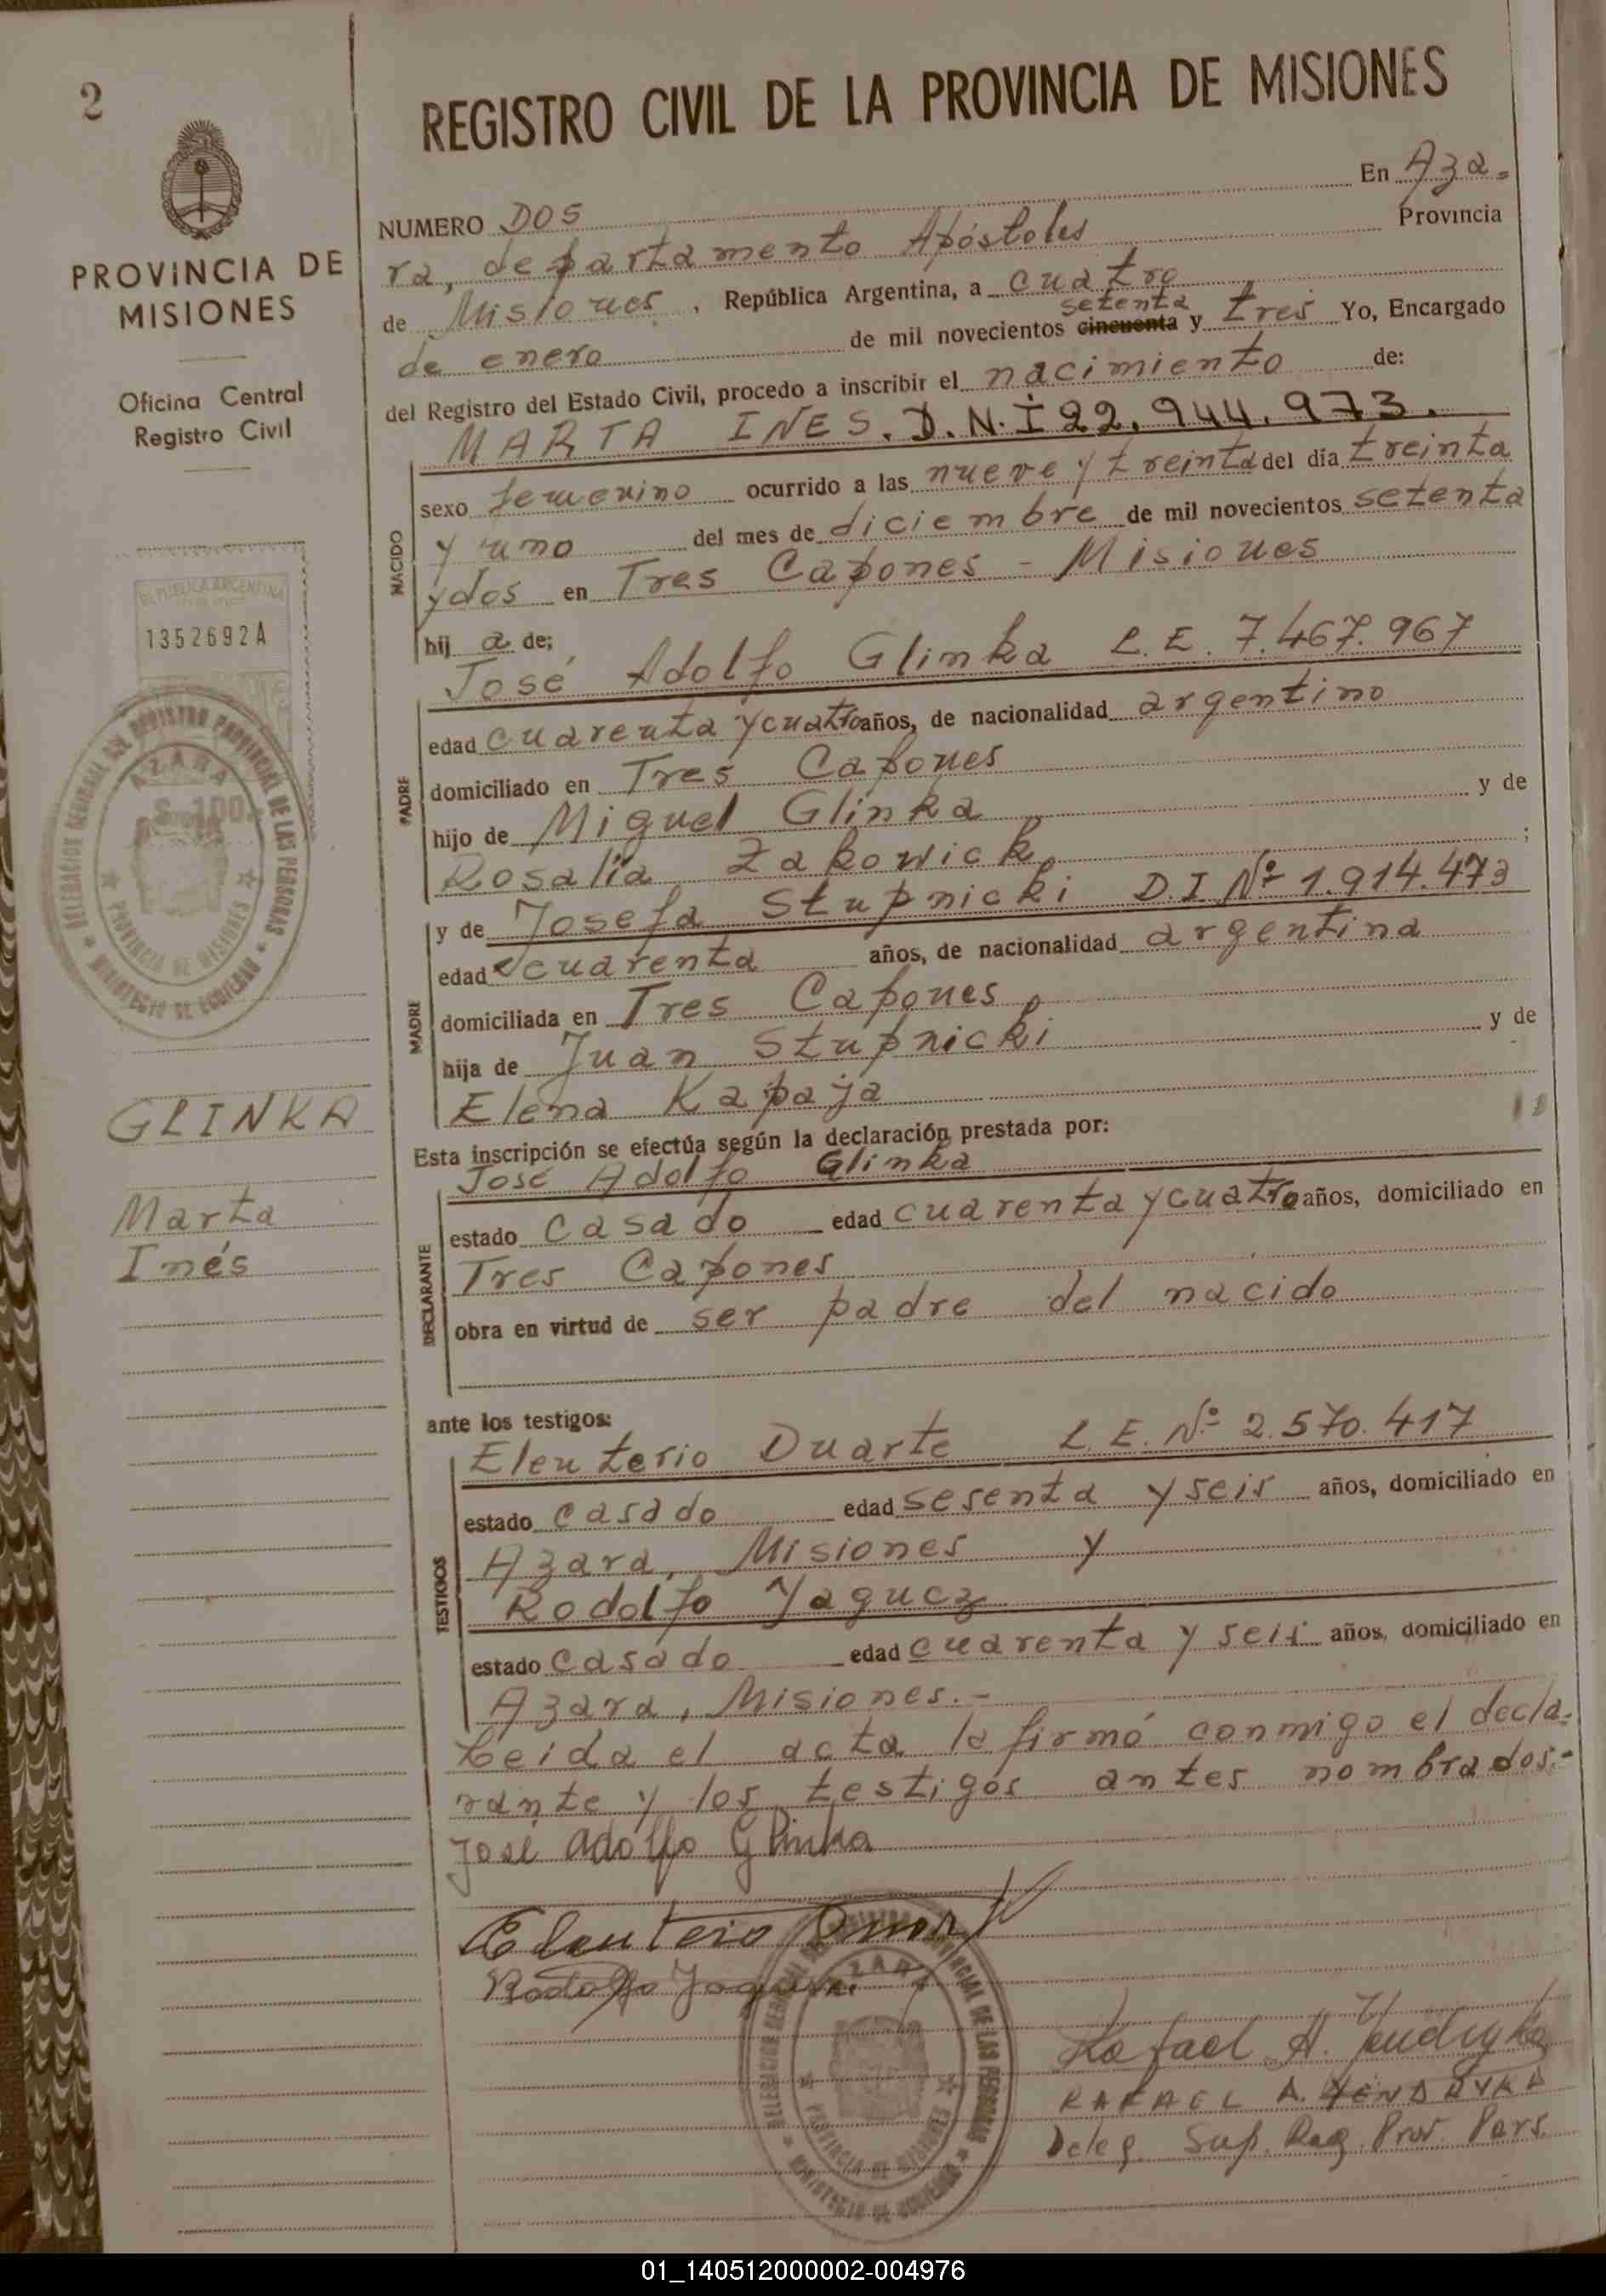 2
PROVINCIA DE
MISIONES
Oficina Central
Registro Civil
REPUBLICA ARGENTINA
1352692A
AZARA
PROVINCIA DE MISIONES
GLINKA
Marta
Inés
REGISTRO CIVIL DE LA PROVINCIA DE MISIONES
NUMERO DOS En Aza=
ra, departamento Apóstoles Provincia
de Misiones, República Argentina, a cuatro
setenta
de enero de mil novecientos cincuenta y tres Yo, Encargado
del Registro del Estado Civil, procedo a inscribir el nacimiento de:
MARTA INES. D.N.I 22.944.973.
NACIDO
sexo femenino ocurrido a las nueve y treinta del día treinta
y uno del mes de diciembre de mil novecientos setenta
y dos en Tres Capones - Misiones
hij a de;
José Adolfo Glinka L.E. 7.467.967
PADRE
edad cuarenta y cuatro años, de nacionalidad argentino
domiciliado en Tres Capones
hijo de Miguel Glinka y de
Rosalía Zakowick ;
y de Josefa Stupnicki D.I Nº 1.914.473
MADRE
edad cuarenta años, de nacionalidad argentina
domiciliada en Tres Capones
hija de Juan Stupnicki y de
Elena Kapaja
Esta inscripción se efectúa según la declaración prestada por:
José Adolfo Glinka
DECLARANTE
estado casado edad cuarenta y cuatro años, domiciliado en
Tres Capones
obra en virtud de ser padre del nacido
ante los testigos:
Eleuterio Duarte L.E. Nº 2.570.417
TESTIGOS
estado casado edad sesenta y seis años, domiciliado en
Azara, Misiones y
Rodolfo Yaguez
estado casado edad cuarenta y seis años, domiciliado en
Azara, Misiones.-
Leida el acta la firmó conmigo el decla=
rante y los testigos antes nombrados.-
José Adolfo Glinka
Eleuterio Duarte
Rodolfo
AZARA
PROVINCIA DE MISIONES
Rafael A.
RAFAEL A.
Deleg. Sup. Reg. Prov. Pers.
01_140512000002-004976